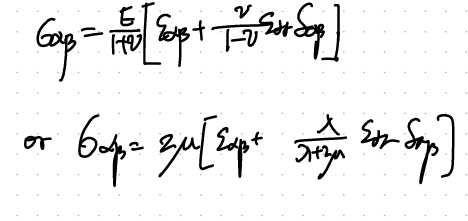 σαβ = E/(1+ν) [εαβ + ν/(1-ν) εγγ δαβ]
or σαβ = 2μ [εαβ + λ/(λ+2μ) εγγ δαβ]